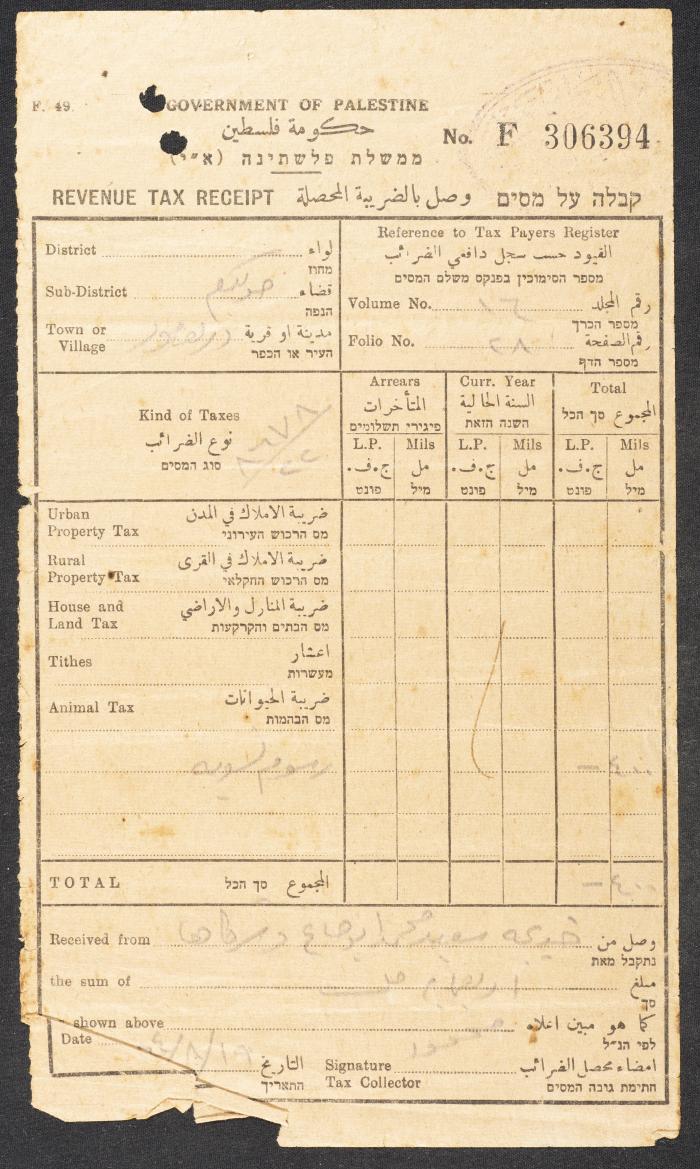 F. 49.
GOVERNMENT OF PALESTINE
حكومة فلسطين
ממשלת פלשתינה (א״י)
No. F 306394
REVENUE TAX RECEIPT وصل بالضريبة المحصلة קבלה על מסים
District لواء
מחוז
Sub-District قضاء
הנפה
Town or Village مدينة او قرية
העיר או הכפר
Reference to Tax Payers Register
القيود حسب سجل دافعي الضرائب
מספר הסימוכין בפנקס משלם המסים
Volume No. ١٦ رقم المجلد
מספר הכרך
Folio No. ٢٨ رقم الصفحة
מספר הדף
Kind of Taxes
نوع الضرائب
סוג המסים
Arrears
المتأخرات
פיגורי תשלומים
Curr. Year
السنة الحالية
השנה הזאת
Total
المجموع סך הכל
L.P. Mils L.P. Mils L.P. Mils
ج.ف. مل ج.ف. مل ج.ف. مل
פונט מיל פונט מיל פונט מיל
Urban ضريبة الاملاك في المدن
Property Tax מס הרכוש העירוני
Rural ضريبة الاملاك في القرى
Property Tax מס הרכוש החקלאי
House and ضريبة المنازل والاراضي
Land Tax מס הבתים והקרקעות
Tithes اعشار
מעשרות
Animal Tax ضريبة الحيوانات
מס הבהמות
رسوم تسويه
— ٤٠٠
TOTAL סך הכל المجموع
— ٤٠٠
Received from وصل من
נתקבל מאת
the sum of مبلغ
סך
shown above كما هو مبين اعلاه
לפי הנ״ל
Date التاريخ
התאריך
Signature امضاء محصل الضرائب
Tax Collector חתימת גובה המסים